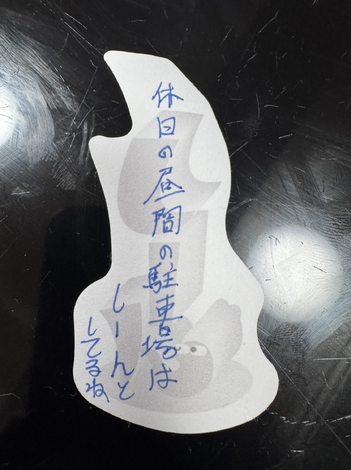 休日の昼間の駐車場は
しーんと
してるね